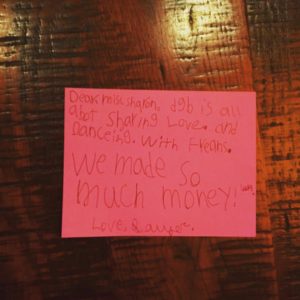 Dear miss sharon, dgb is all
abot sharing Love. and
Danceing. With Freans.
We made so
much money!
Love,